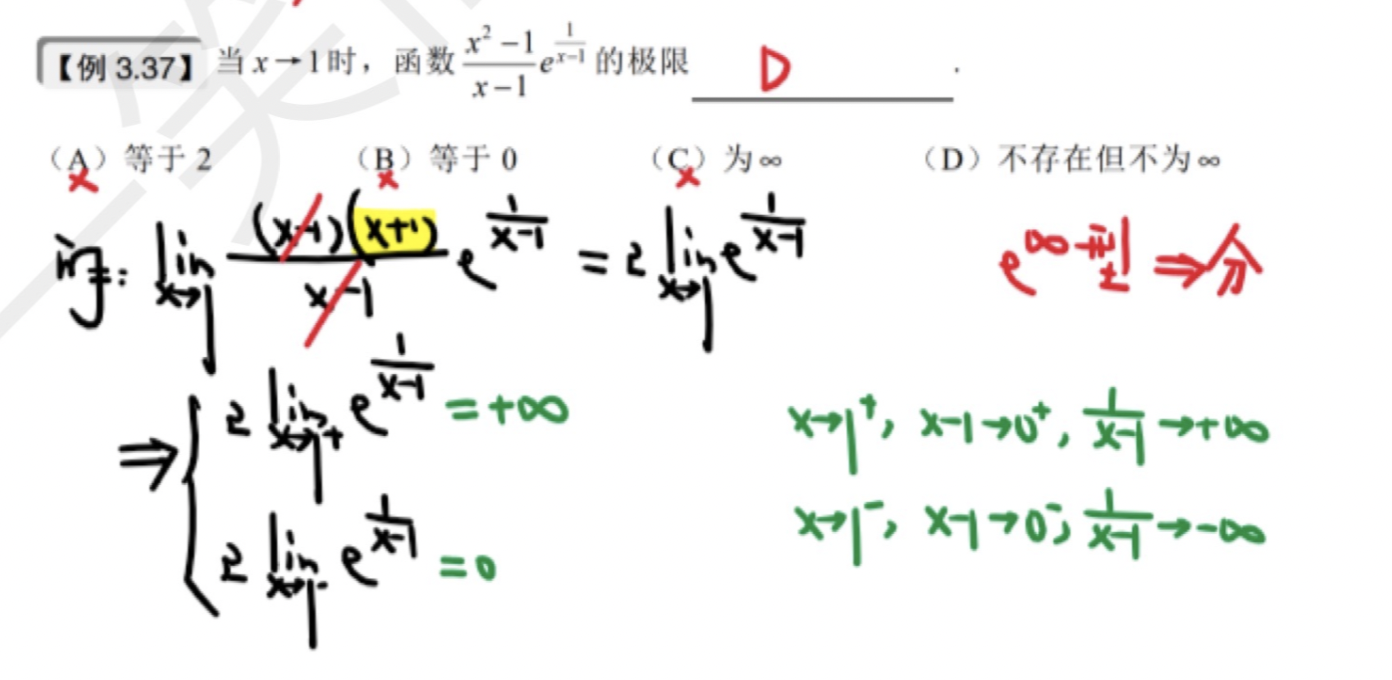 【例 3.37】 当 x→1 时，函数 \frac{x²-1}{x-1} e^{\frac{1}{x-1}} 的极限 D .
（A）等于 2 （B）等于 0 （C）为∞ （D）不存在但不为∞
× × ×
lim_{x→1} \frac{(x-1)(x+1)}{x-1} e^{\frac{1}{x-1}} = 2 lim_{x→1} e^{\frac{1}{x-1}} e^∞型 ⇒分
⇒ { 2 lim_{x→1⁺} e^{\frac{1}{x-1}} = +∞ x→1⁺, x-1→0⁺, \frac{1}{x-1}→+∞
2 lim_{x→1⁻} e^{\frac{1}{x-1}} = 0 x→1⁻, x-1→0⁻, \frac{1}{x-1}→-∞